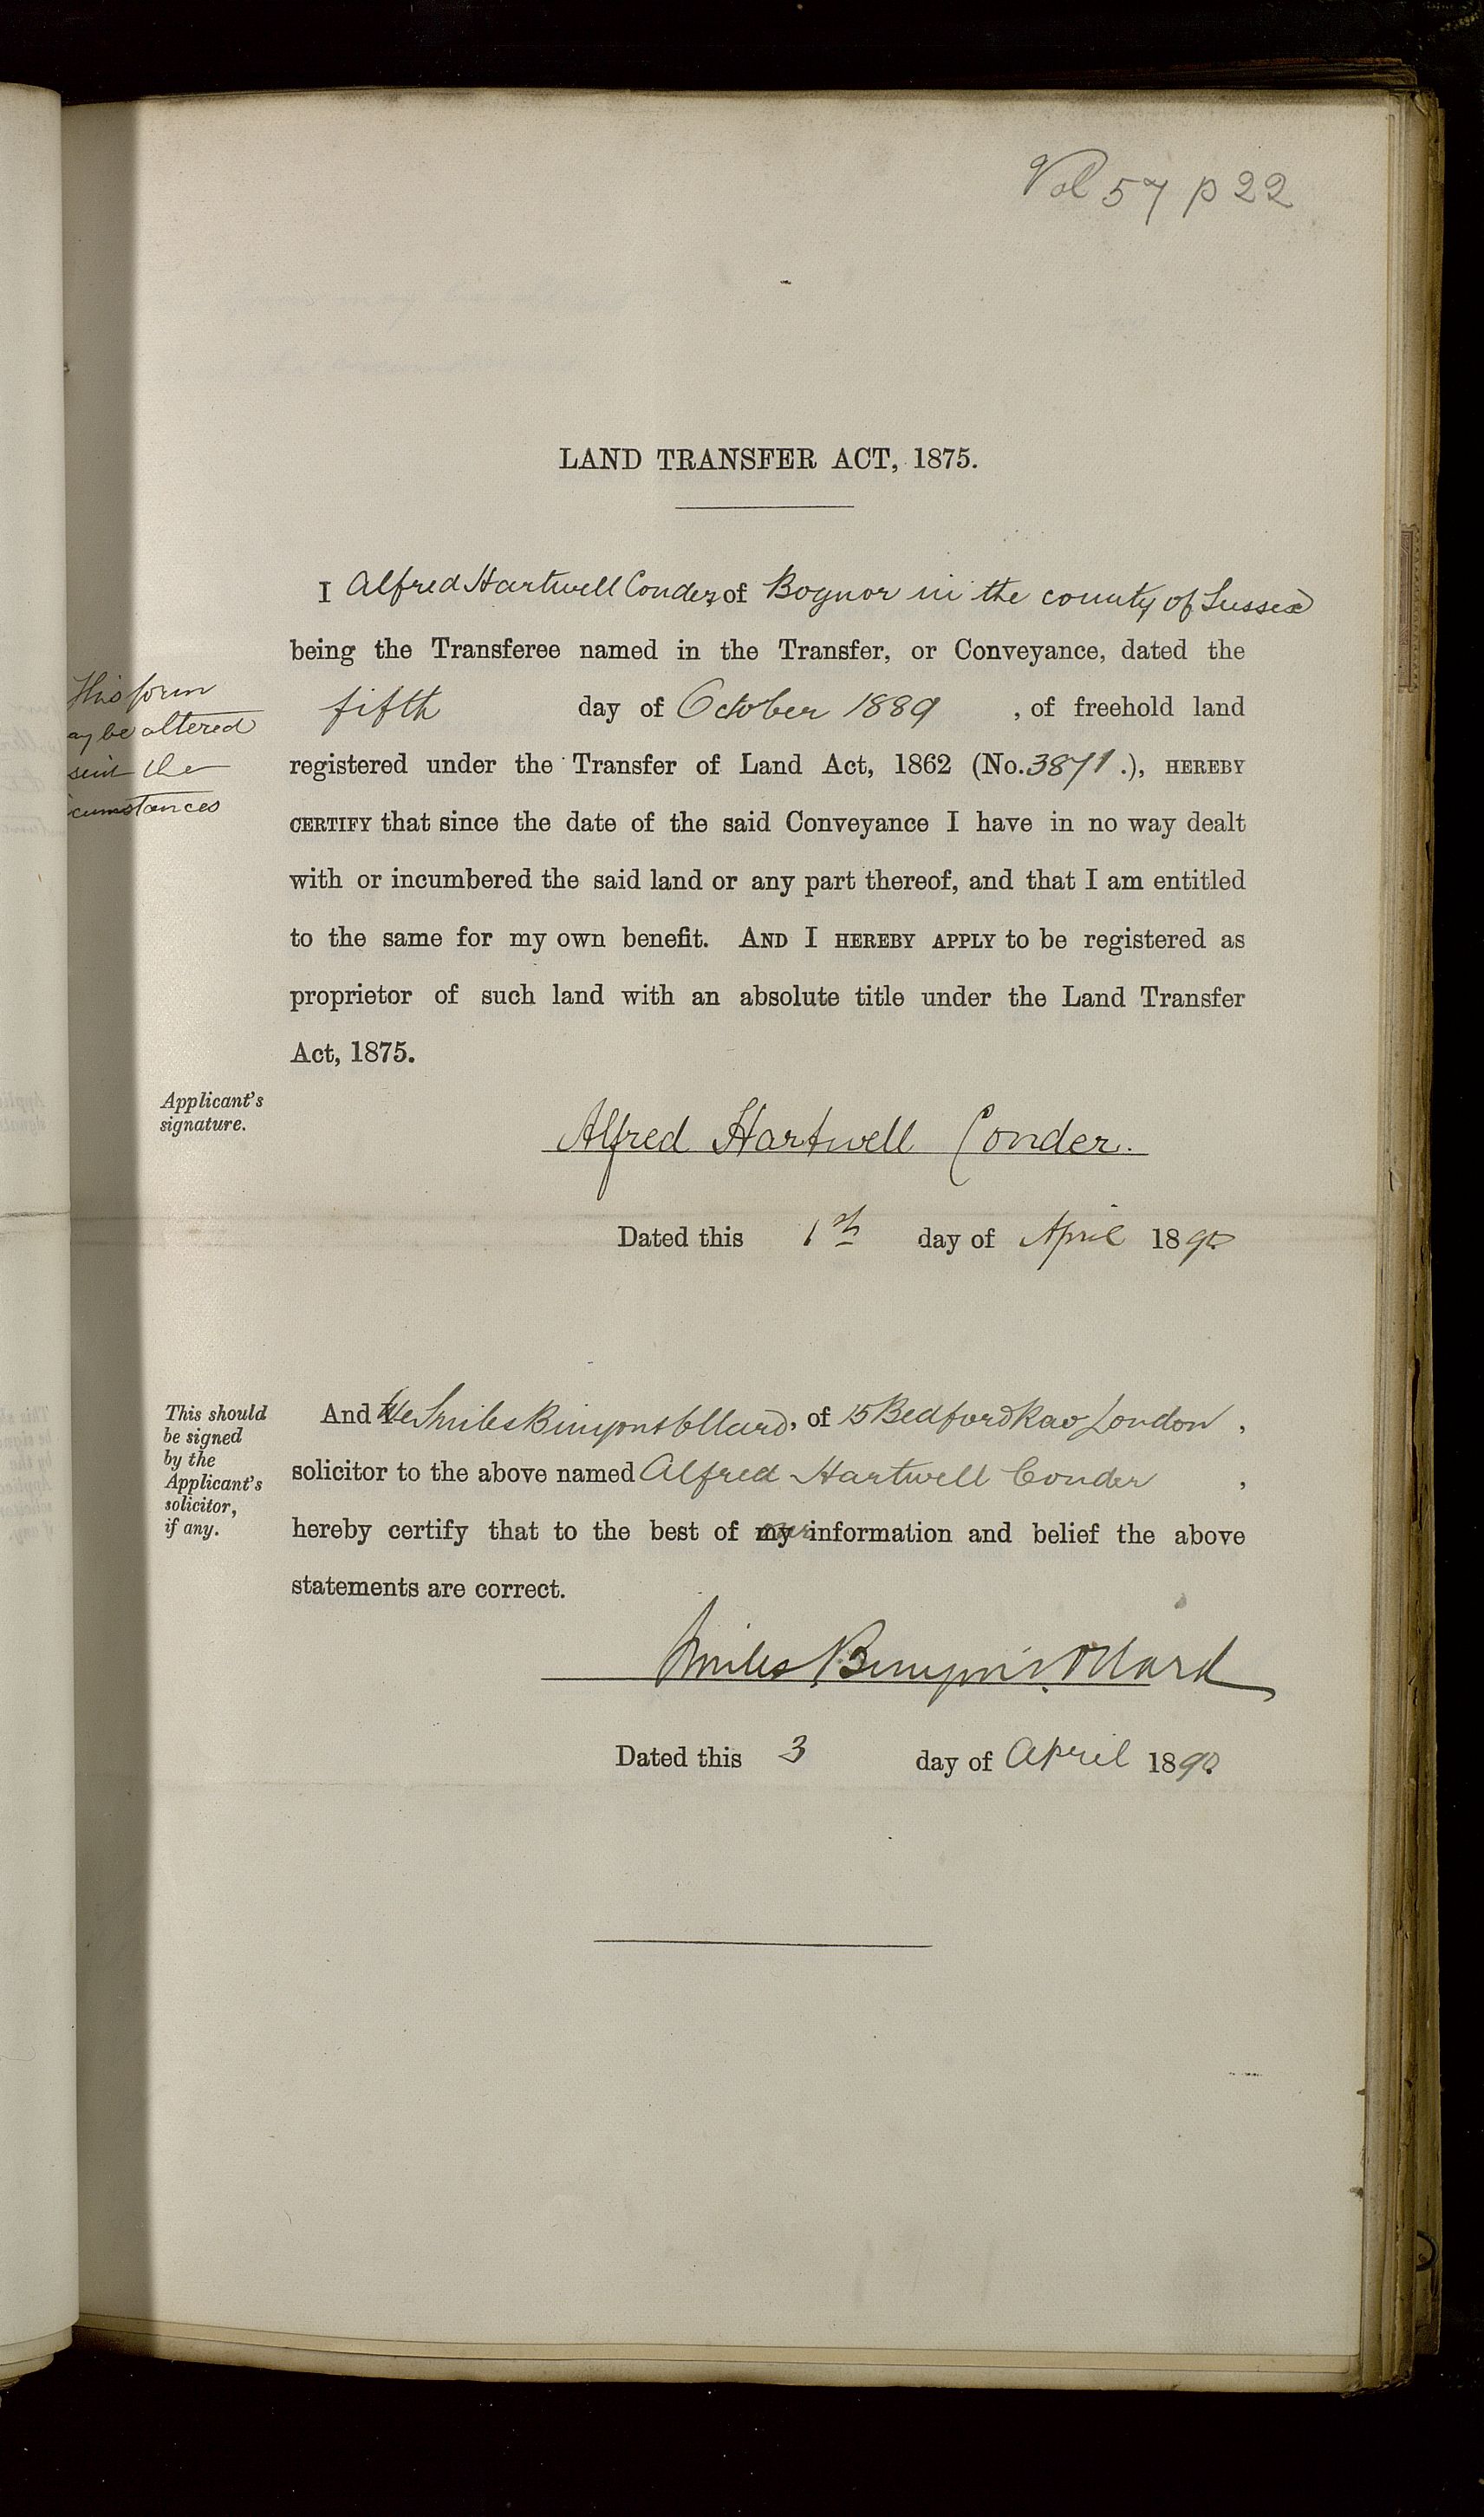 Vol 57 p 22
LAND TRANSFER ACT, 1875.
I Alfred Hartwell Conder, of Bognor in the county of Sussex
being the Transferee named in the Transfer, or Conveyance, dated the
fifth day of October 1889 , of freehold land
registered under the Transfer of Land Act, 1862 (No. 3871.), HEREBY
CERTIFY that since the date of the said Conveyance I have in no way dealt
with or incumbered the said land or any part thereof, and that I am entitled
to the same for my own benefit. AND I HEREBY APPLY to be registered as
proprietor of such land with an absolute title under the Land Transfer
Act, 1875.
This form
ay be altered
suit the
cumstances
Applicant's
signature.
Alfred Hartwell Conder.
Dated this 1st day of April 1890
This should
be signed
by the
Applicant's
solicitor,
if any.
And We Smiles Binyon & Ollard, of 15 Bedford Row London ,
solicitor to the above named Alfred Hartwell Conder ,
hereby certify that to the best of our information and belief the above
statements are correct.
Smiles Binyon & Ollard
Dated this 3 day of April 1890